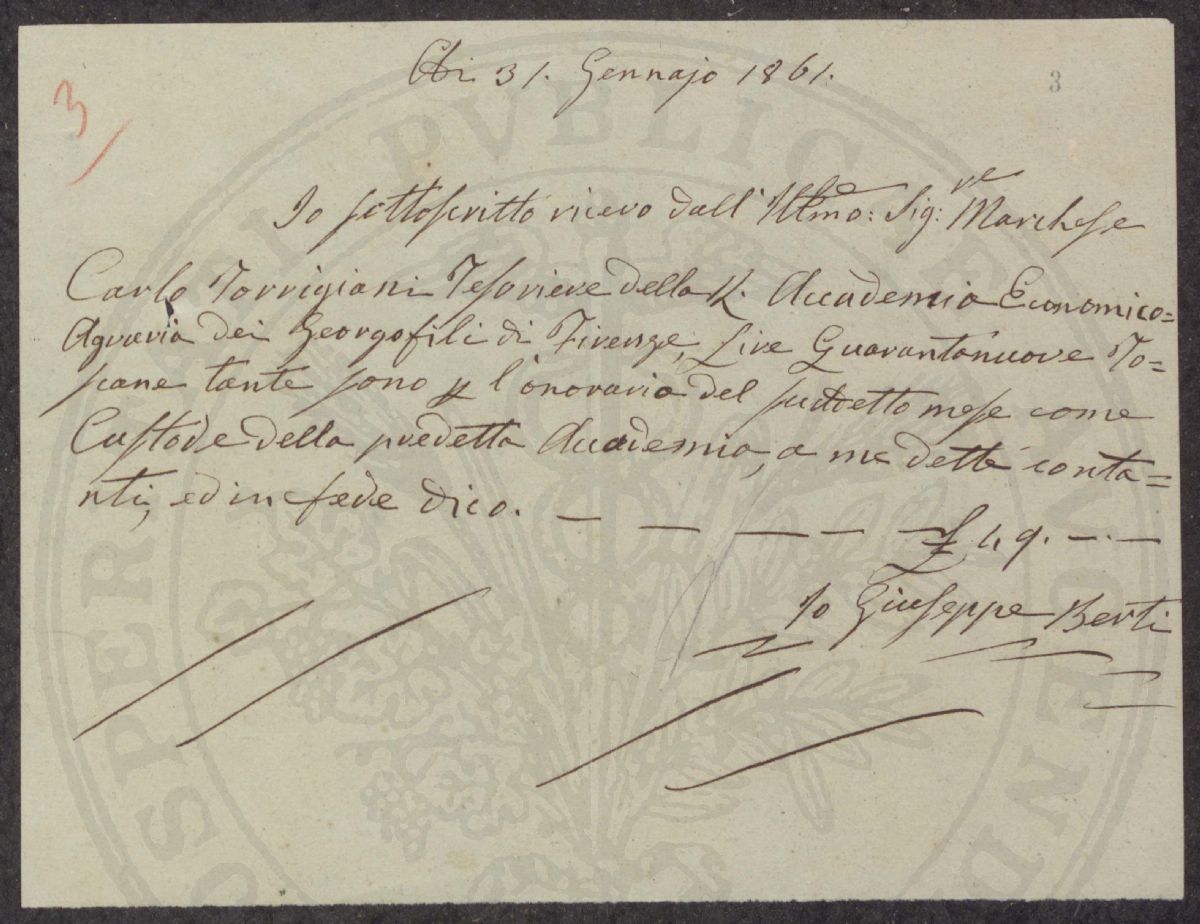 Adi 31. Gennajo 1861.
3
3
Io sottoscritto ricevo dall' Illmo: Sig:re Marchese
Carlo Torrigiani Tesoriere della R. Accademia Economico=
Agraria dei Georgofili di Firenze, Lire Quarantanuove To=
scane tante sono p l'onorario del suddetto mese come
Custode della predetta Accademia, a me dette conta=
nti, ed in fede dico. — — — — £ 49. —.—
Io Giuseppe Berti
PROSPERITATI PVBLICAE AVGENDAE